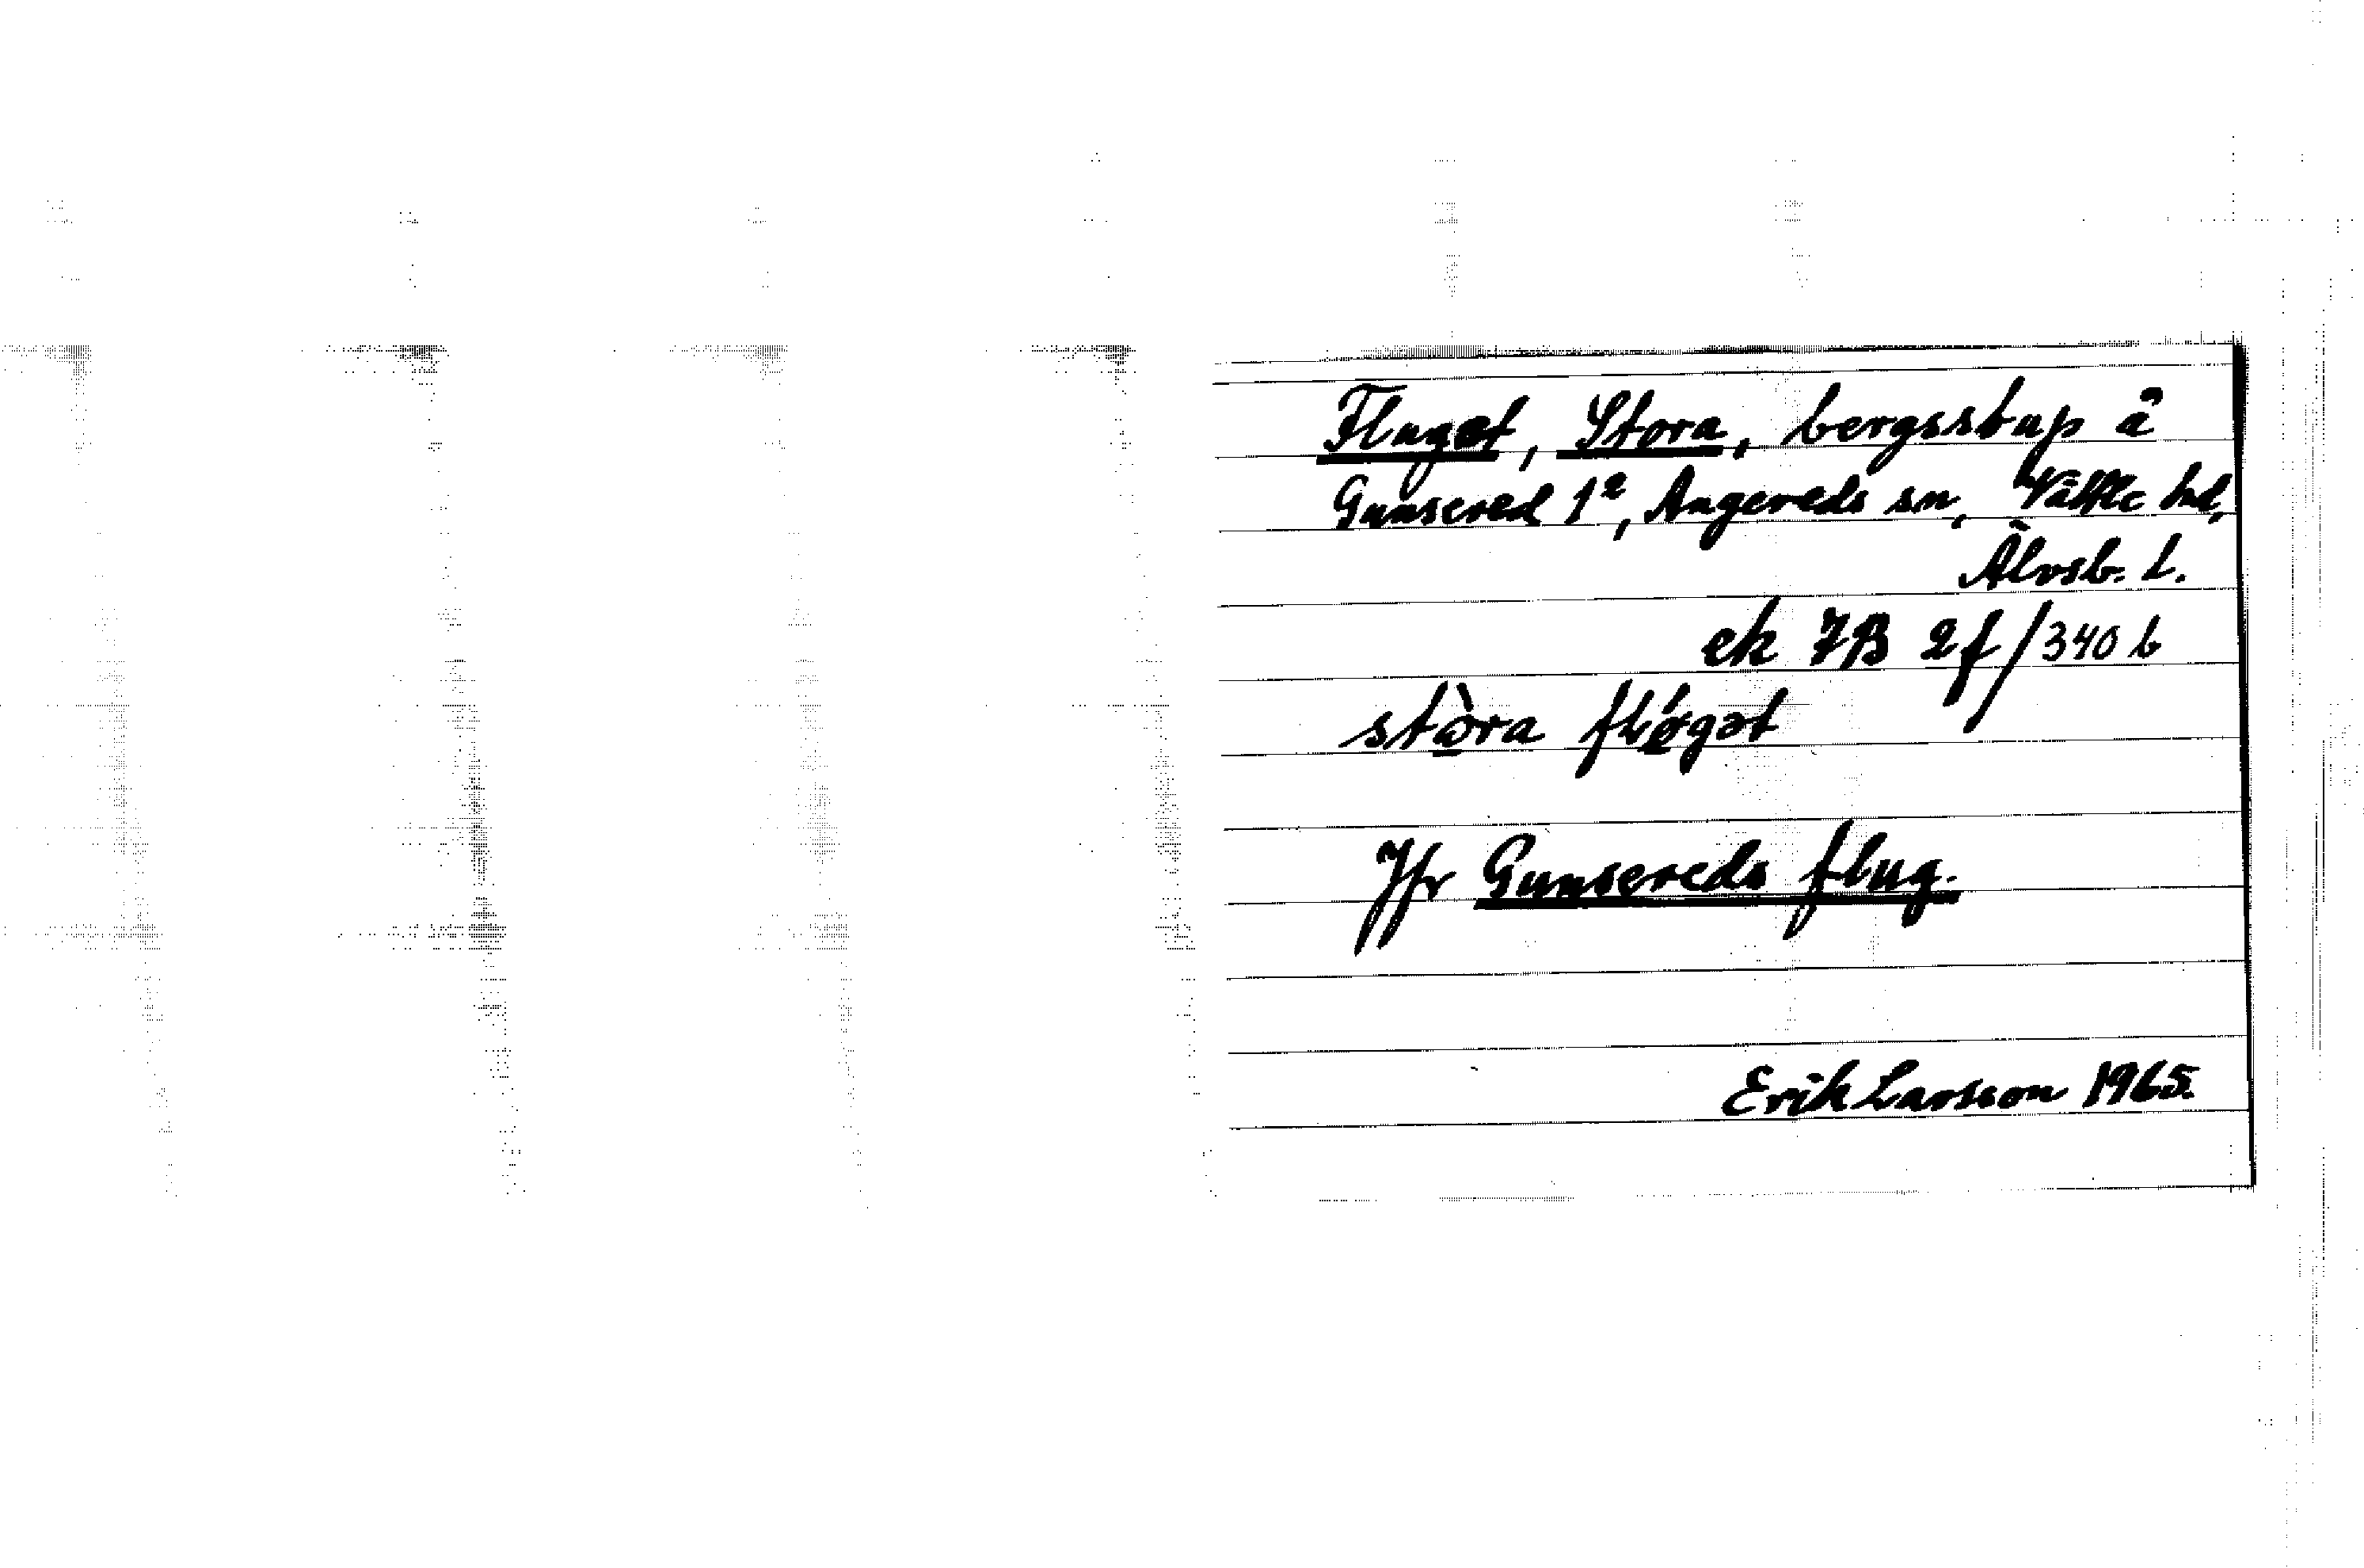 Fluget, Stora, bergsstup å
Gunsered 1², Angereds sn, Vättle hd,
Älvsb. l.
ek 7B 2f/340 b
stòra fløgət
Jfr Gunsereds flug.
Erik Larsson 1965.